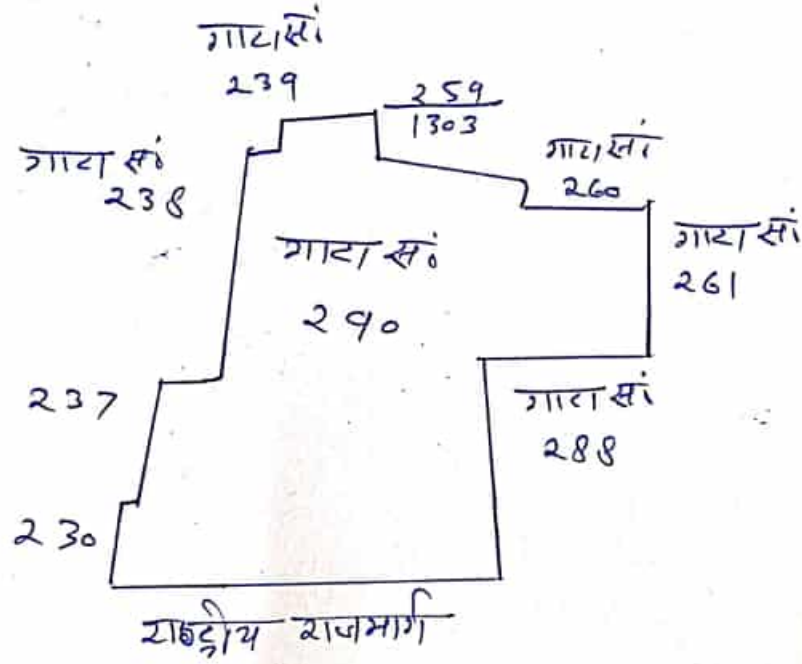 गाटा सं
239
259
1303
गाटा सं
238
गाटा सं
260
गाटा सं
261
गाटा सं०
290
237
गाटा सं
288
230
राष्ट्रीय राजमार्ग